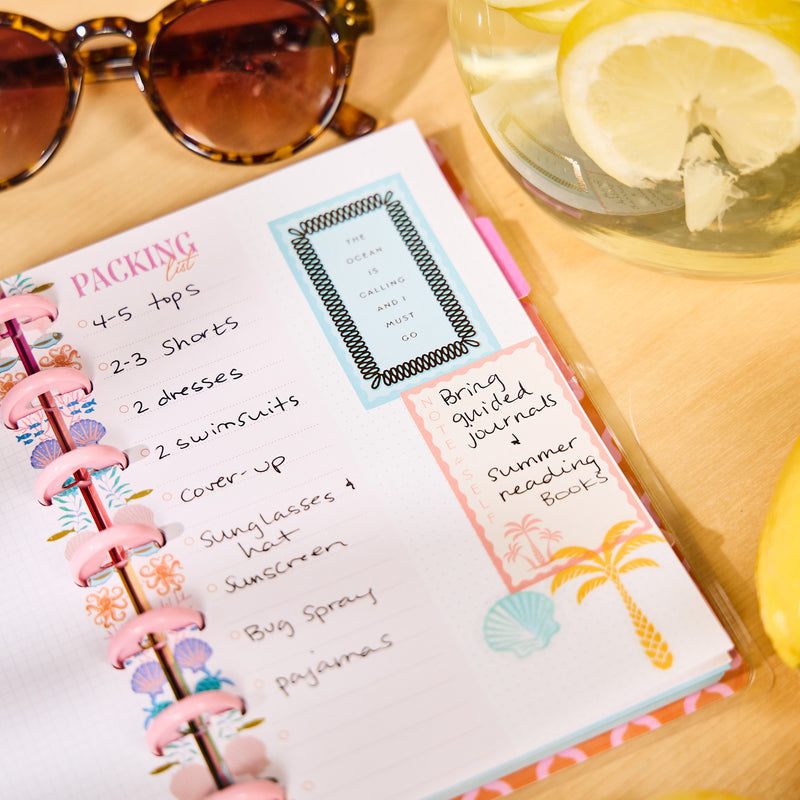 PACKING
list
4-5 tops
2-3 Shorts
2 dresses
2 swimsuits
cover-up
sunglasses &
hat
sunscreen
Bug spray
pajamas
THE
OCEAN
IS
CALLING
AND I
MUST
GO
NOTE 2 SELF
Bring
guided
journals
&
summer
reading
Books